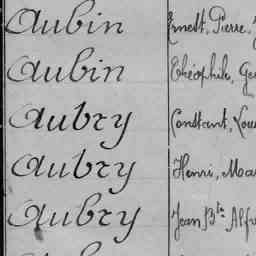 Aubin Ernest, Pierre,
Aubin Théophile, Ge
Aubry Constant, Lou
Aubry Henri, Ma
Aubry Jean Bte Alf